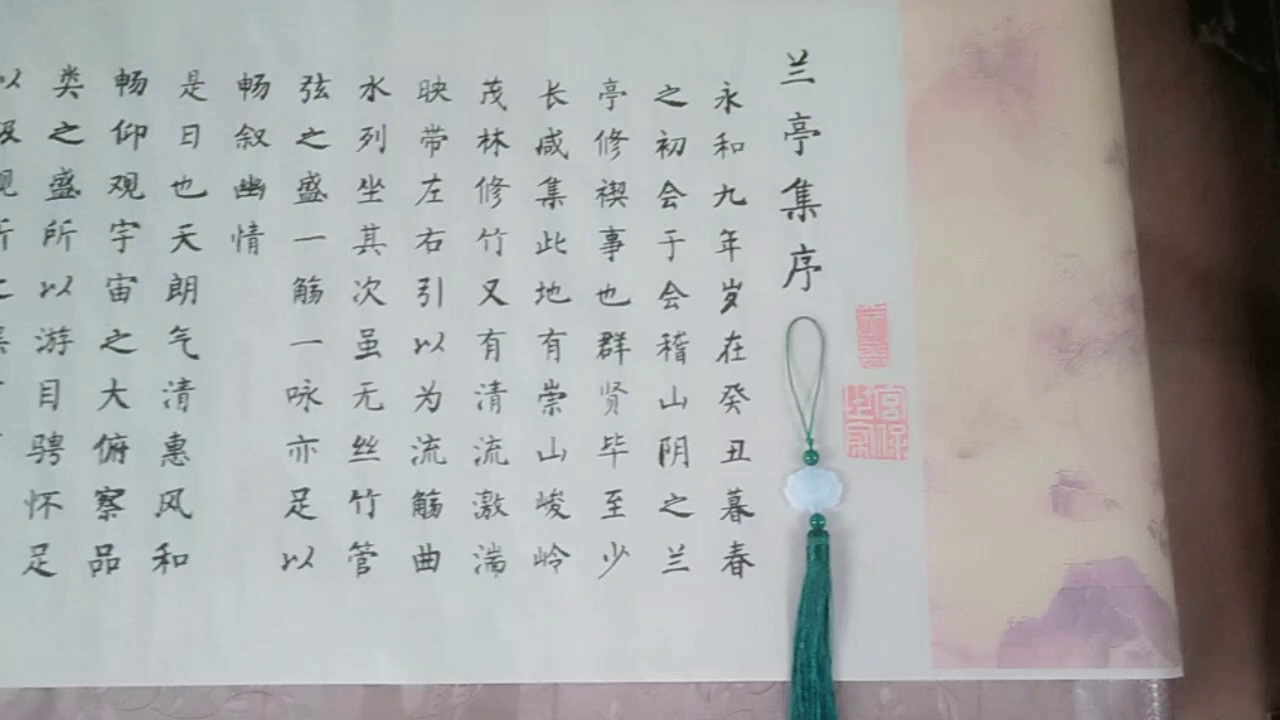 兰亭集序
永和九年岁在癸丑暮春
之初会于会稽山阴之兰
亭修禊事也群贤毕至少
长咸集此地有崇山峻岭
茂林修竹又有清流激湍
映带左右引以为流觞曲
水列坐其次虽无丝竹管
弦之盛一觞一咏亦足以
畅叙幽情
是日也天朗气清惠风和
畅仰观宇宙之大俯察品
类之盛所以游目骋怀足
宫保